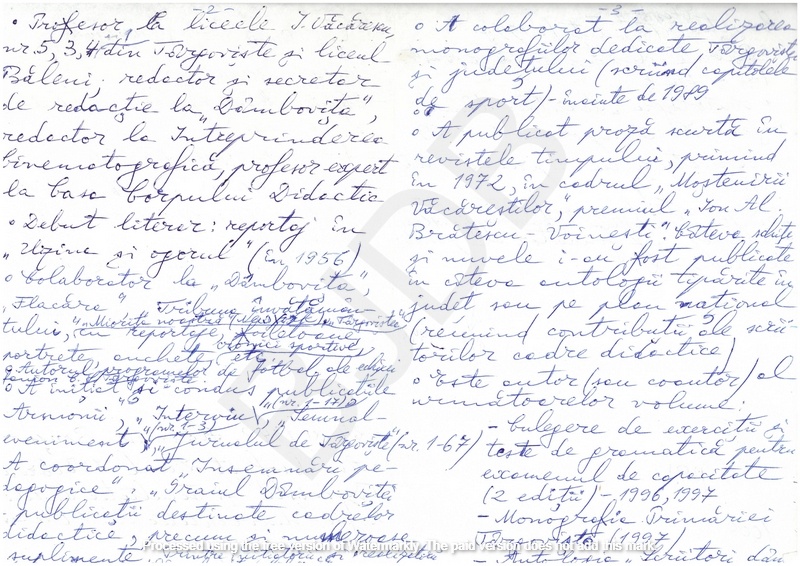 -2-
• Profesor la liceele I. Văcărescu,
nr. 5, 3, 4 din Târgoviște și liceul
Băleni, redactor și secretar
de redacție la „Dâmbovița",
redactor la Intreprinderea
Cinematografică, profesor expert
la Casa Corpului Didactic
• Debut literar: reportaj în
„Uzina și ogorul" (în 1956)
• Colaborator la „Dâmbovița",
„Flacăra" Tribuna învățămân-
tului, cu reportaje, foiletoane,
cronici sportive,
portrete, anchete, etc.
• Autorul programelor de fotbal, ale echipei
• A inițiat și condus publicațiile
Armonii, „Interviu" (nr. 1-17), „Semnal-
eveniment" (nr. 1-3), „Jurnalul de Târgoviște" (nr. 1-67)
A coordonat „Însemnări pe-
dagogice", „Graiul Dâmboviței"
- publicații destinate cadrelor
didactice, precum și numeroase
suplimente
-3-
• A colaborat la realizarea
monografiilor dedicate Târgoviștei
și județului (scriind capitolele
de sport) - înainte de 1989
• A publicat proză scurtă în
revistele timpului, primind
în 1972, în cadrul „Moștenirii
Văcăreștilor," premiul „Ion Al.
Brătescu Voinești". Câteva schițe
și nuvele i-au fost publicate
în câteva antologii tipărite în
județ sau pe plan național
(reunind contribuții ale scrii-
torilor cadre didactice)
• Este autor (sau coautor) al
următoarelor volume:
- Culegere de exerciții și
teste de gramatică pentru
examenul de capacitate -
(2 ediții) - 1996, 1997
- Monografia Primăriei
Târgoviște (1997)
- Antologia „Scriitori dâm
Processed using the free version of Watermarkly. The paid version does not add this mark.
BJDB